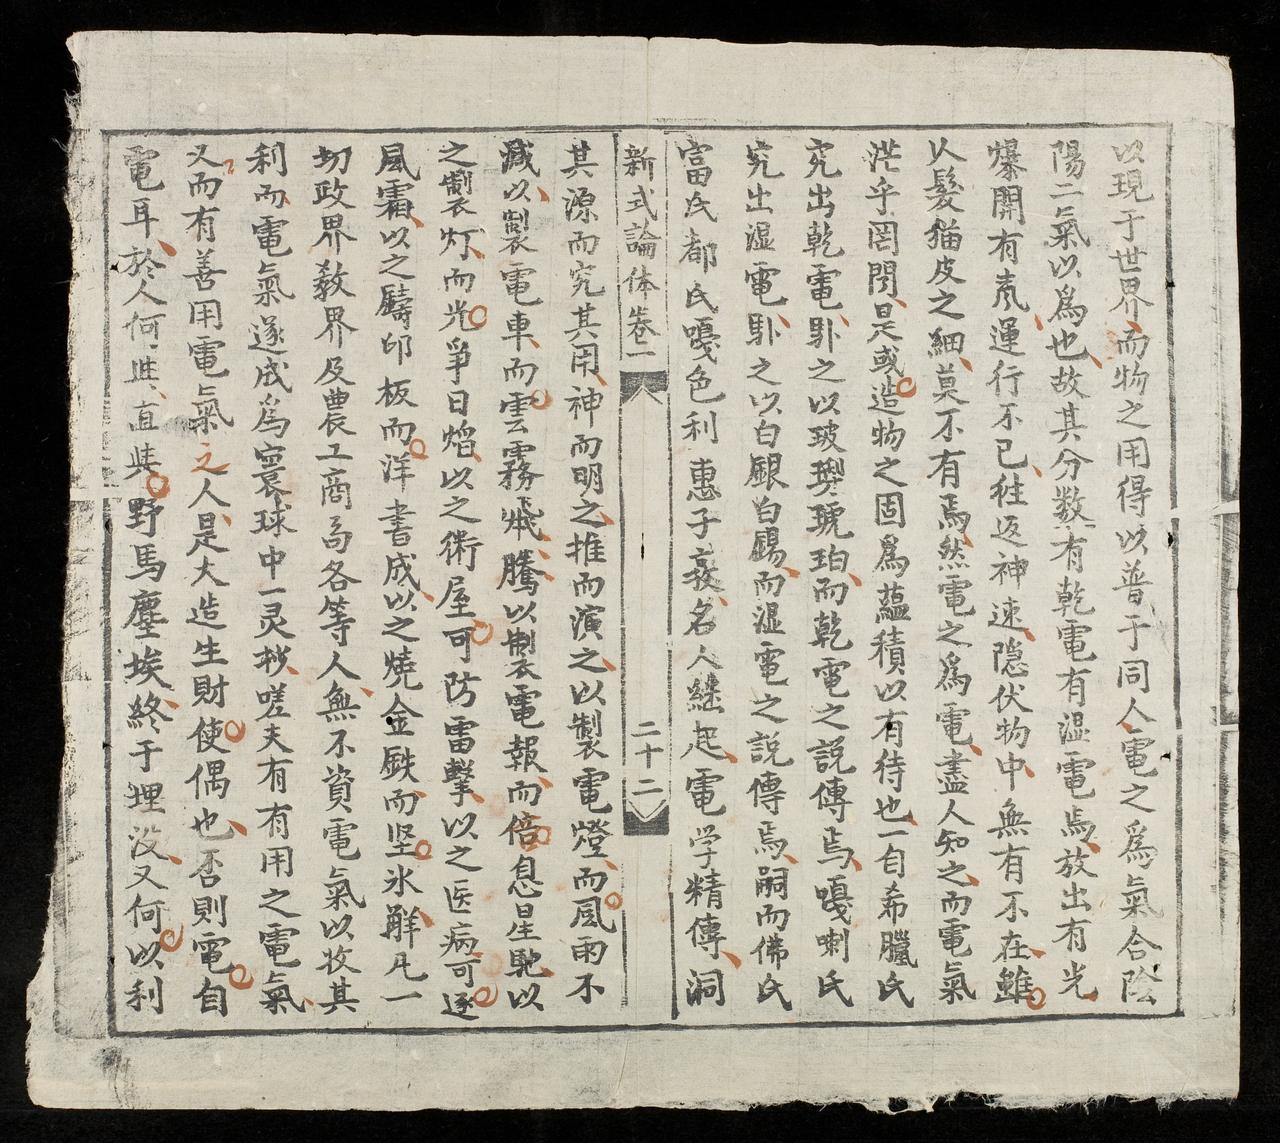 以現于世界而物之用得以普于同人電之爲氣合陰
陽二氣以爲也故其分数有乾電有湿電焉放出有光
爆開有氣運行不已往返神速隐伏物中無有不在雖
人髮猫皮之細莫不有焉然電之爲電盡人知之而電氣
茫乎罔聞是或造物之固爲蘊積以有待也一自希臘氏
究出乾電馭之以玻璃琥珀而乾電之説傳焉嘎喇氏
究出湿電馭之以白銀白錫而湿電之説傳焉嗣而佛氏
富氏都氏嘎色利惠子袞名人継起電学精傳洞
新式論体卷一
二十二
其源而究其用神而明之推而演之以製電燈而風雨不
滅以製電車而雲霧飛騰以製電報而倍息星馳以
之製灯而光爭日熖以之術屋可防雷擊以之医病可逐
風霜以之鑄印板而洋書成以之燒金鉄而坚氷觧凢一
切政界教界及農工商各等人無不資電氣以收其
利而電氣遂成爲寰球中一灵杪嗟夫有有用之電氣
又而有善用電氣之人是大造生財使偶也否則電自
電耳於人何與直與野馬塵埃終于埋没又何以利